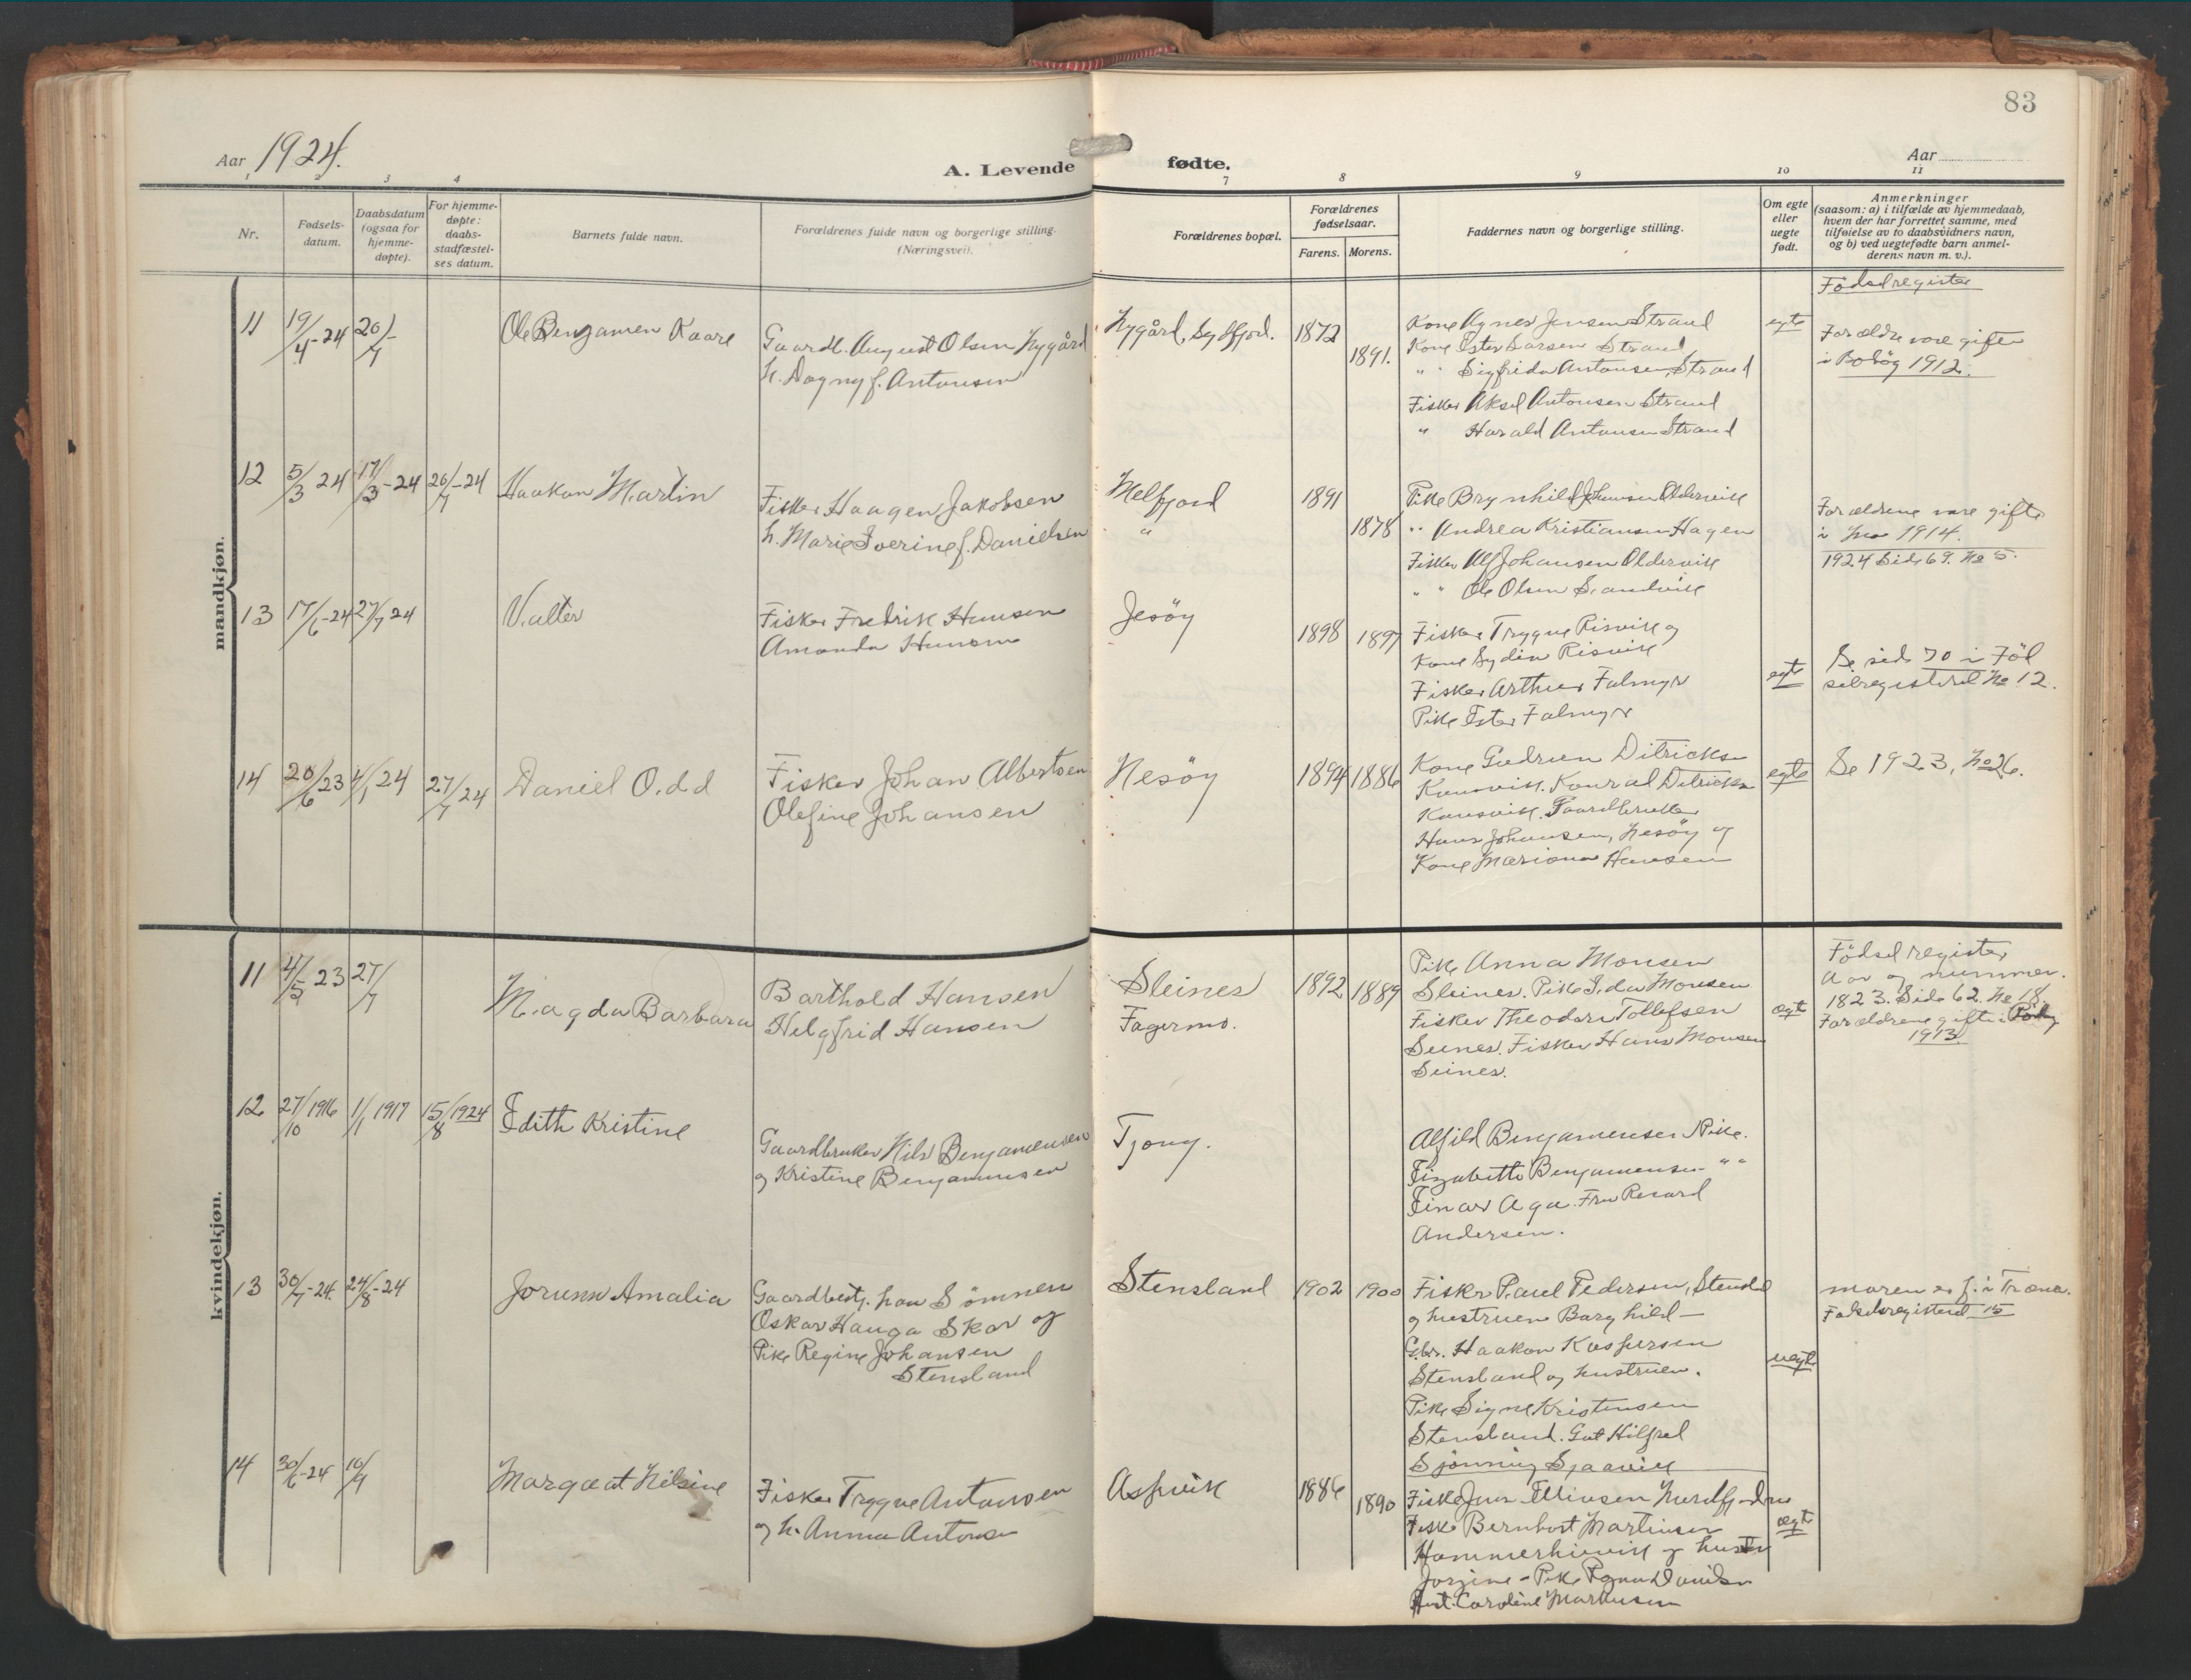 83
Aar 1924.
A. Levende fødte.
Aar
1 2 3 4 7 8 9 10 11
Nr.
Fødsels-
datum.
Daabsdatum
(ogsaa for
hjemme-
døpte).
For hjemme-
døpte:
daabs-
stadfæstel-
ses datum.
Barnets fulde navn.
Forældrenes fulde navn og borgerlige stilling.
(Næringsvei).
Forældrenes bopæl.
Forældrenes
fødselsaar.
Farens. Morens.
Faddernes navn og borgerlige stilling.
Om egte
eller
uegte
født.
Anmerkninger
(saasom: a) i tilfælde av hjemmedaab,
hvem der har forrettet samme, med
tilføielse av to daabsvidners navn,
og b) ved uegtefødte barn anmel-
derens navn m. v.).
mandkjøn.
Födselregister
11 19/4-24 20/7- Ole Benjamen Kaare
Gaardb. August Olsen Nygård
h. Dagny f. Antonsen
Nygård, Sylfjord. 1872
1891.
Kone Agnes Jensen Strand
Kone Ester Larsen Strand
" " Sigfrida Antonsen, Strand
Fisker Aksel Antonsen Strand
" Harald Antonsen Strand
egte
Forældre vare gifte
i Bodøg 1912.
12 5/3 24 17/3-24 20/7-24 Haakon Martin
Fisker Haagen Jakobsen
h. Marie Iverine f. Danielsen
Melfjord
"
1891
1878
Pike Brynhild Johansen Oldervik
" Andrea Kristiansen Hagen
Fisker Alf Johansen Oldervik
" " Ole Olsen Sandvik
Forældrene vare gifte
i 1914.
1924 Side 69. No 5.
13 17/6-24 27/7 24 Valter
Fisker Fredrik Hansen
Amanda Hansen
Jesöy
1898 1897
Fisker Trygve Risvik og
Kone Lydia Risvik
Fisker Arthur Falmyr
Pike Ester Falmyr
egte
Se side 70 i Föd
selregisteret No 12.
14 20/6 23 4/1 24 27/7 24 Daniel Odd
Fisker Johan Albertsen
Olefine Johansen
Nesöy
1894 1886
Kone Gudrun Ditricks
Kunsvik. Konrad Ditricksen
Kunsvik. Gaardbruker
Hans Johansen, Nesöy og
Kone Mariana Hansen
egte
Se 1923, No 26.
kvindekjøn.
11 4/5 23 27/7 Magda Barbara
Barthold Hansen
Helgfrid Hansen
Sleines
Fagermo.
1892 1889
Pike Anna Monsen
Sleines. Pike Ida Monsen
Fisker Theodor Tollefsen
Seines. Fisker Hans Monsen
Seines.
egte
Födselregister
Aar og nummer.
1823. Side 62. No 18.
Forældrene gifte i Rödøy
1913.
12 27/10 1916 1/1 1917 15/8 1924 Edith Kristine
Gaardbruker Nils Benjamensen
og Kristine Benjaminsen
Tjong.
Alfild Benjamensen Pike.
Elizabeth Benjamensen " "
Einar Aga. Fru Ricard
Andersen.
13 30/7-24. 24/8-24 Jorunn Amalia
Gaardbestj. paa Sömnen
Oskar Hauga Skar og
Pike Regine Johansen
Stensland
Stensland 1902 1900
Fisker Paul Pedersen, Stensland
og hustruen Borghild —
Gbr. Haakon Kaspersen
Stensland og hustruen.
Pike Signe Kristensen
Stensland. Gut Hilfred
Sjönning Sjaavik
uegte
moren er f. i Træna.
Födselsregisteret 15
14 30/6-24 10/9 Margaat Nilsine
Fisker Trygve Antonsen
og h. Anna Antonsen
Aspvik 1886
1890
Fisker Jens Ellinsen
Fisker Bernhart Martinsen
Hammerhievik og hustru
Jorgine - Pike Ragna Danielsen
Hust. Caroline Markusen
egte